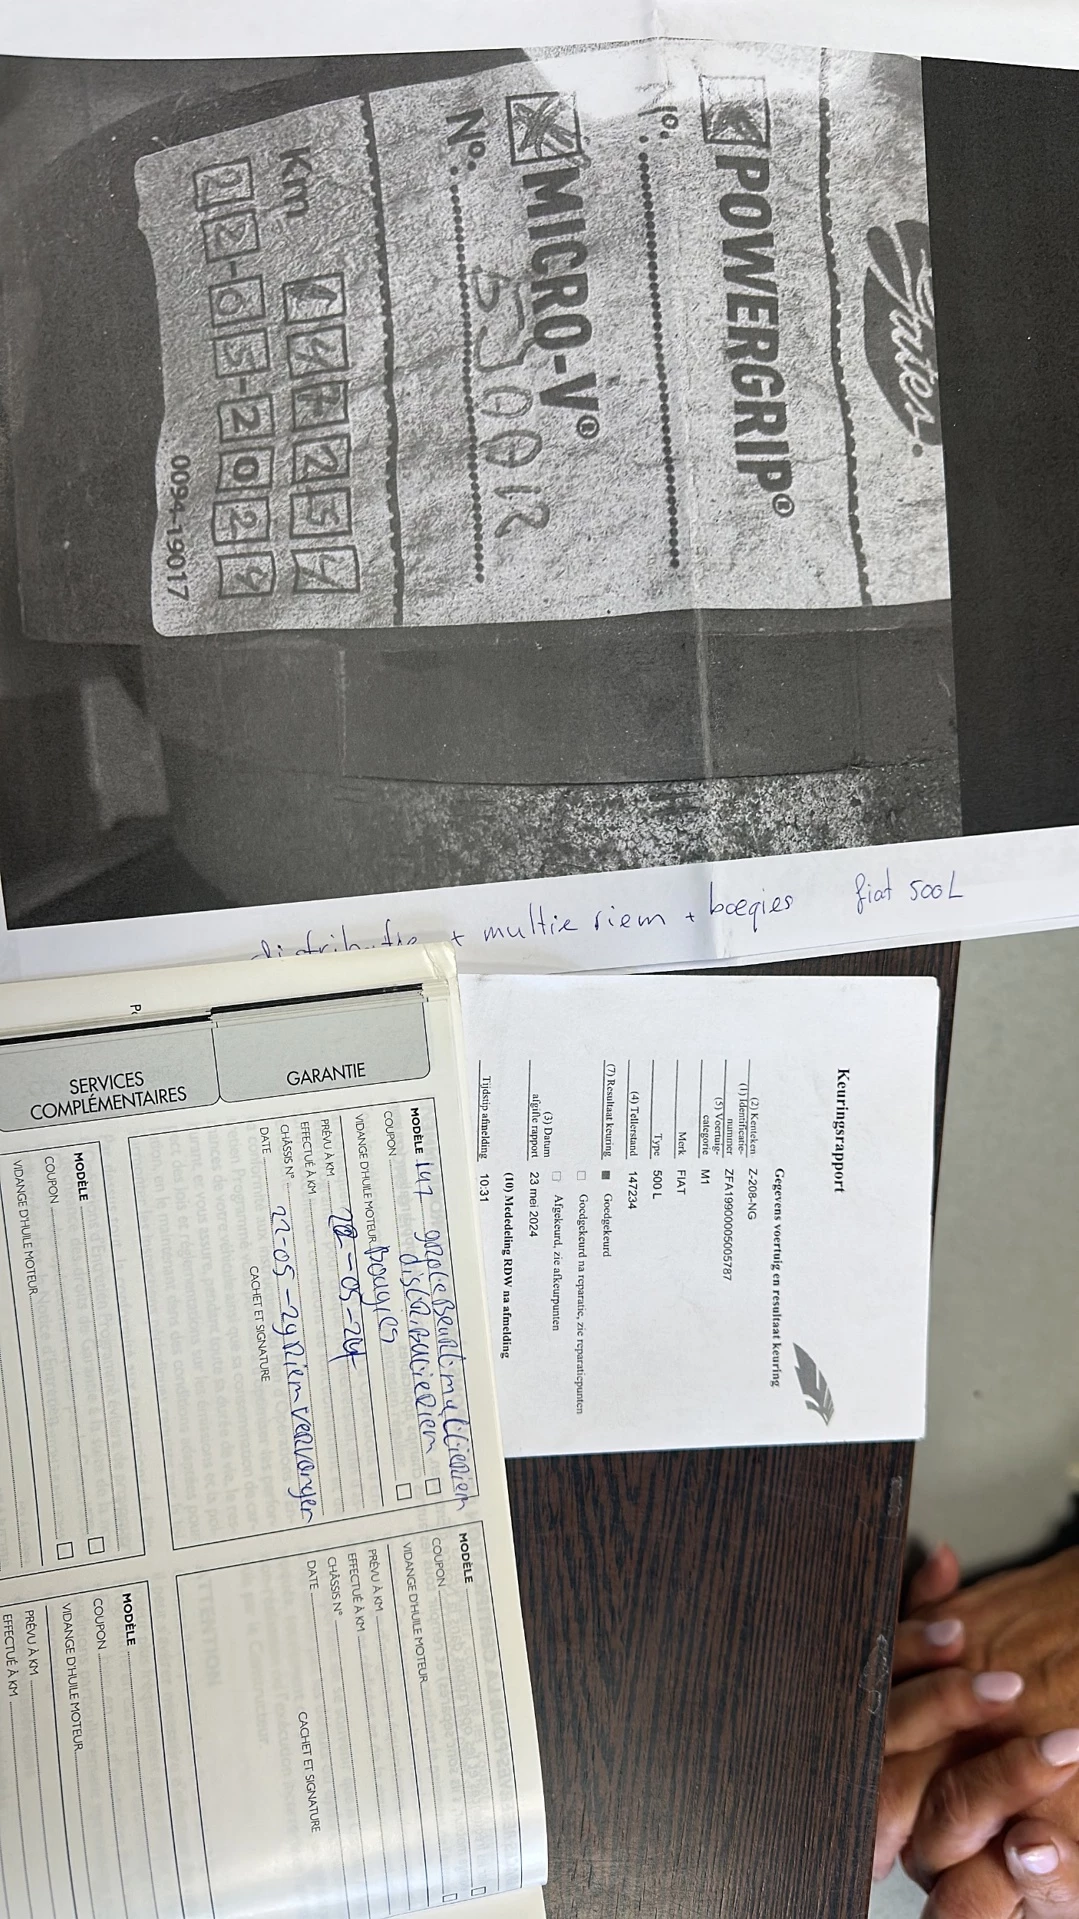 Gates.
POWERGRIP®
N°.
MICRO-V®
N°.
Km 147254
22-05-2024
0094-19017
distributie + multie riem + boegies fiat 500L
Keuringsrapport
Gegevens voertuig en resultaat keuring
(2) Kenteken Z-208-NG
(1) Identificatie-
nummer ZFA19900005005787
(5) Voertuig-
categorie M1
Merk FIAT
Type 500 L
(4) Tellerstand 147234
(7) Resultaat keuring Goedgekeurd
Goedgekeurd na reparatie, zie reparatiepunten
Afgekeurd, zie afkeurpunten
(3) Datum
afgifte rapport 23 mei 2024
(10) Mededeling RDW na afmelding
Tijdstip afmelding 10:31
GARANTIE
SERVICES
COMPLÉMENTAIRES
MODÈLE 147
COUPON
VIDANGE D'HUILE MOTEUR Bougies
PRÉVU À KM
EFFECTUÉ À KM 22-05-24
CHÂSSIS N°
DATE 22-05-24 Riem vervangen
CACHET ET SIGNATURE
MODÈLE
COUPON
VIDANGE D'HUILE MOTEUR
PRÉVU À KM
EFFECTUÉ À KM
CHÂSSIS N°
DATE
CACHET ET SIGNATURE
MODÈLE
COUPON
VIDANGE D'HUILE MOTEUR
MODÈLE
COUPON
VIDANGE D'HUILE MOTEUR
PRÉVU À KM
EFFECTUÉ À KM